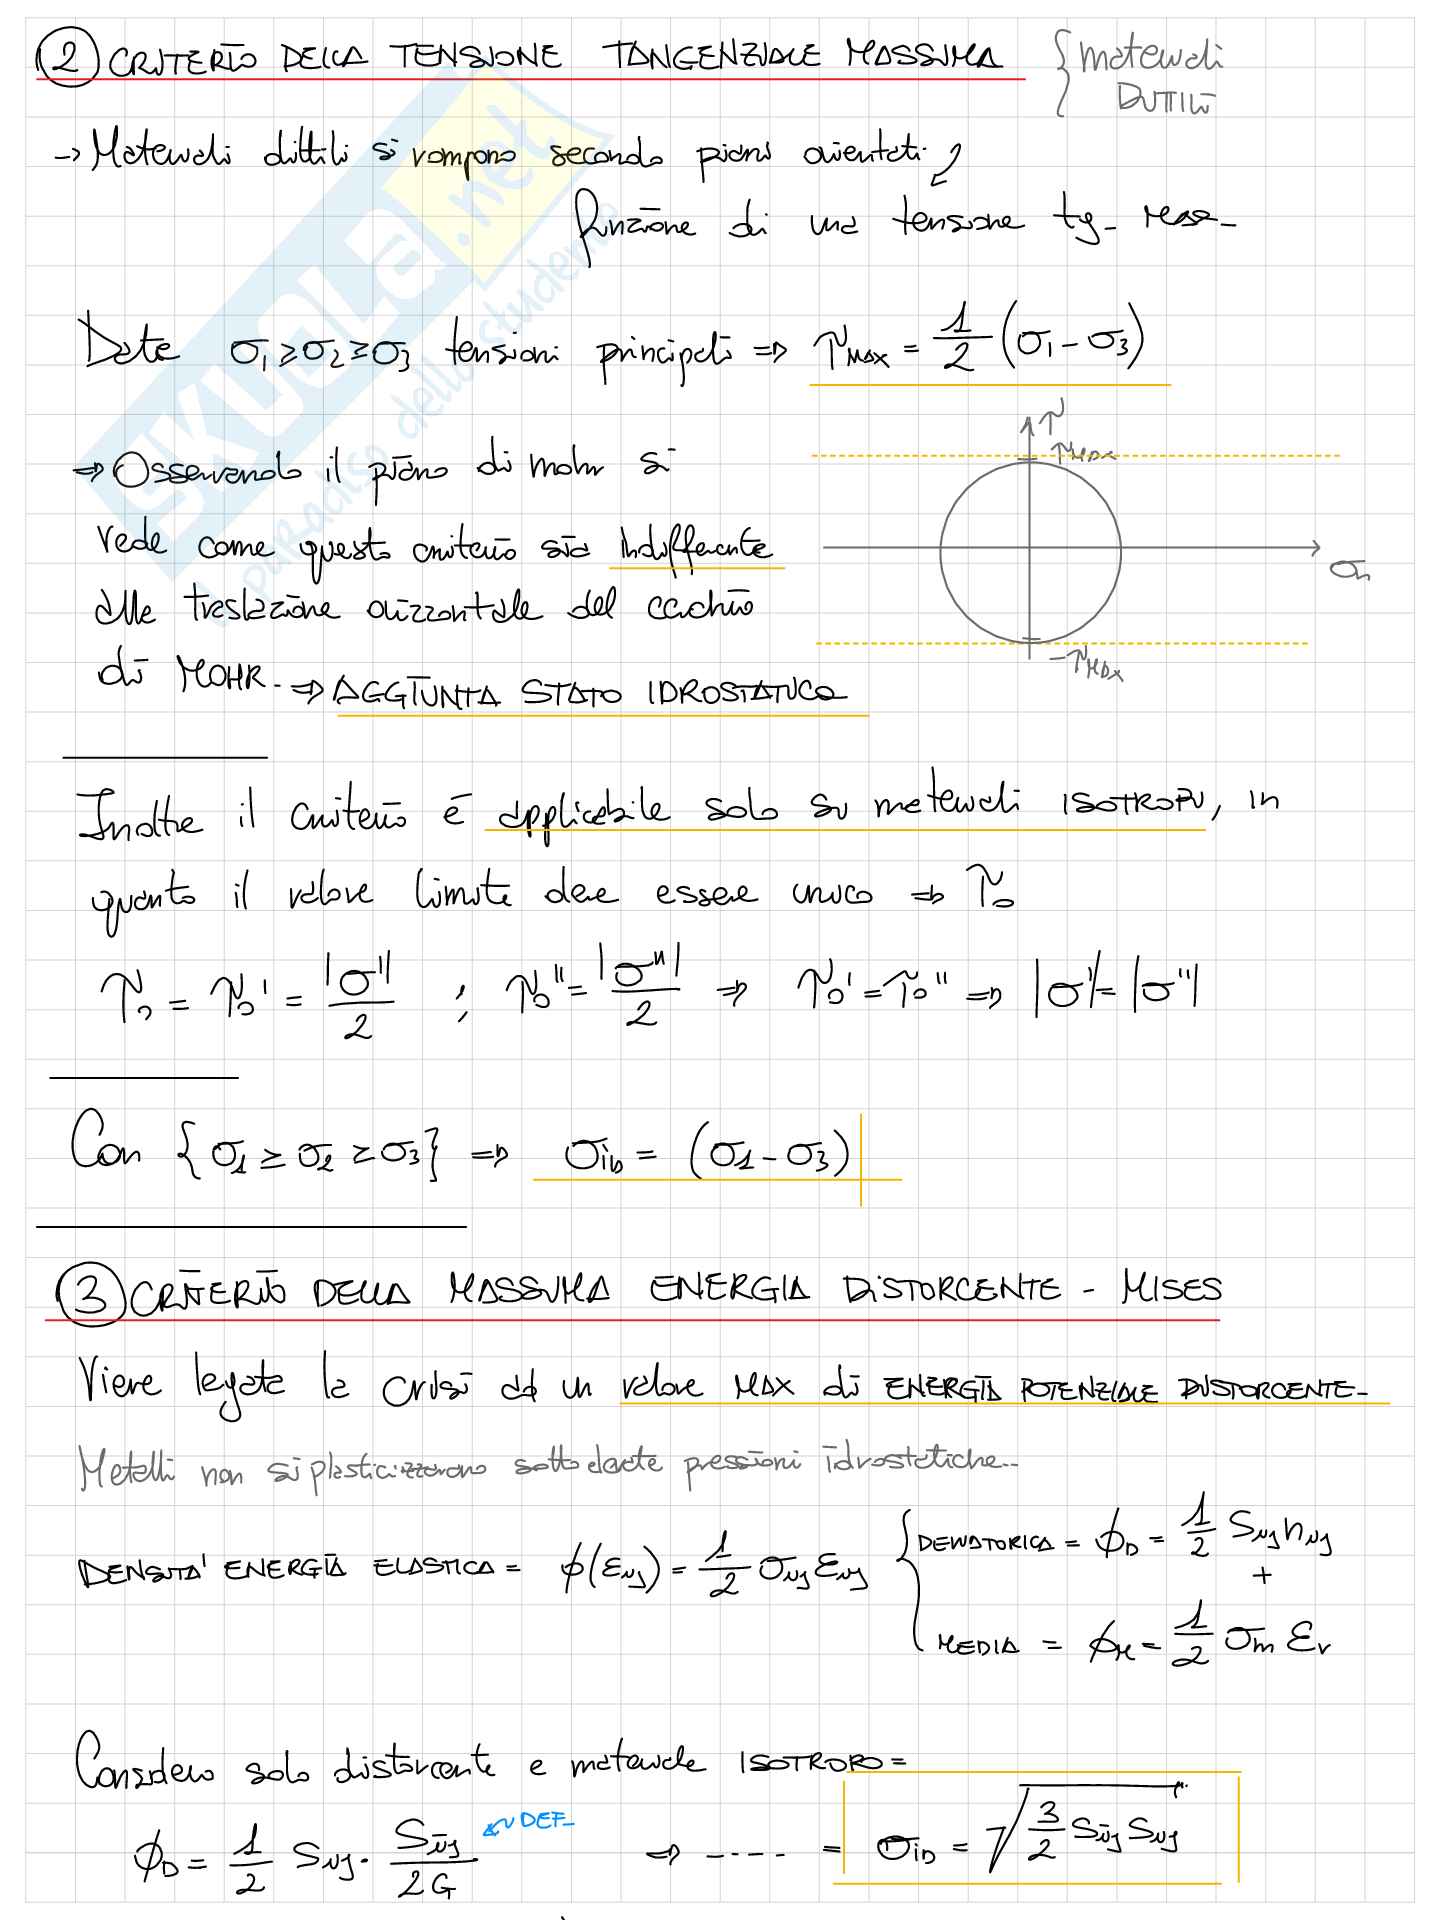 ② CRITERIO DELLA TENSIONE TANGENZIALE MASSIMA { Materiali DUTTILI
→ Materiali duttili si rompono secondo piani orientati
funzione di una tensione tg. max.
Date σ₁ ≥ σ₂ ≥ σ₃ tensioni principali ⇒ τMAX = 1/2 (σ₁ - σ₃)
τ
τMAX
⇒ Osservando il piano di mohr si
vede come questo criterio sia indifferente
σn
alla traslazione orizzontale del cerchio
-τMAX
di MOHR. ⇒ AGGIUNTA STATO IDROSTATICO
Inoltre il criterio è applicabile solo su materiali ISOTROPI, in
quanto il valore limite deve essere unico ⇒ τ₀
τ₀ = τ₀' = |σ'|/2 ; τ₀'' = |σ''|/2 ⇒ τ₀' = τ₀'' ⇒ |σ'| = |σ''|
Con {σ₁ ≥ σ₂ ≥ σ₃} ⇒ σiD = (σ₁ - σ₃)
③ CRITERIO DELLA MASSIMA ENERGIA DISTORCENTE - MISES
Viene legata la crisi ad un valore MAX di ENERGIA POTENZIALE DISTORCENTE.
Metalli non si plasticizzano sotto elevate pressioni idrostatiche..
DENSITA' ENERGIA ELASTICA = φ(εij) = 1/2 σij εij { DEVIATORICA = φD = 1/2 Sij nij
+
MEDIA = φM = 1/2 σm εv
Considero solo distorcente e materiale ISOTROPO =
φD = 1/2 Sij · Sij/2G DEF. ⇒ ---- = σiD = √(3/2 Sij Sij)
SKUOLA.net
il paradiso dello studente